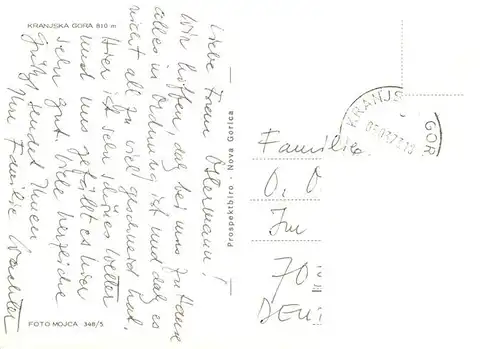 KRANJSKA GORA 810 m
Liebe Frau Ostermann!
Wir hoffen, daß bei uns zu Hause
alles in Ordnung ist und daß es
nicht all zu viel geschneid hat.
Hier ist sehr schönes Wetter
und uns gefällt es hier
sehr gut. Viele herzliche
Grüße sendet Ihnen
Ihre Familie Wachter
FOTO MOJCA 346/5
Prospektbiro - Nova Gorica
KRANJS
GOR
Familie
O. O
Im
70
DEU